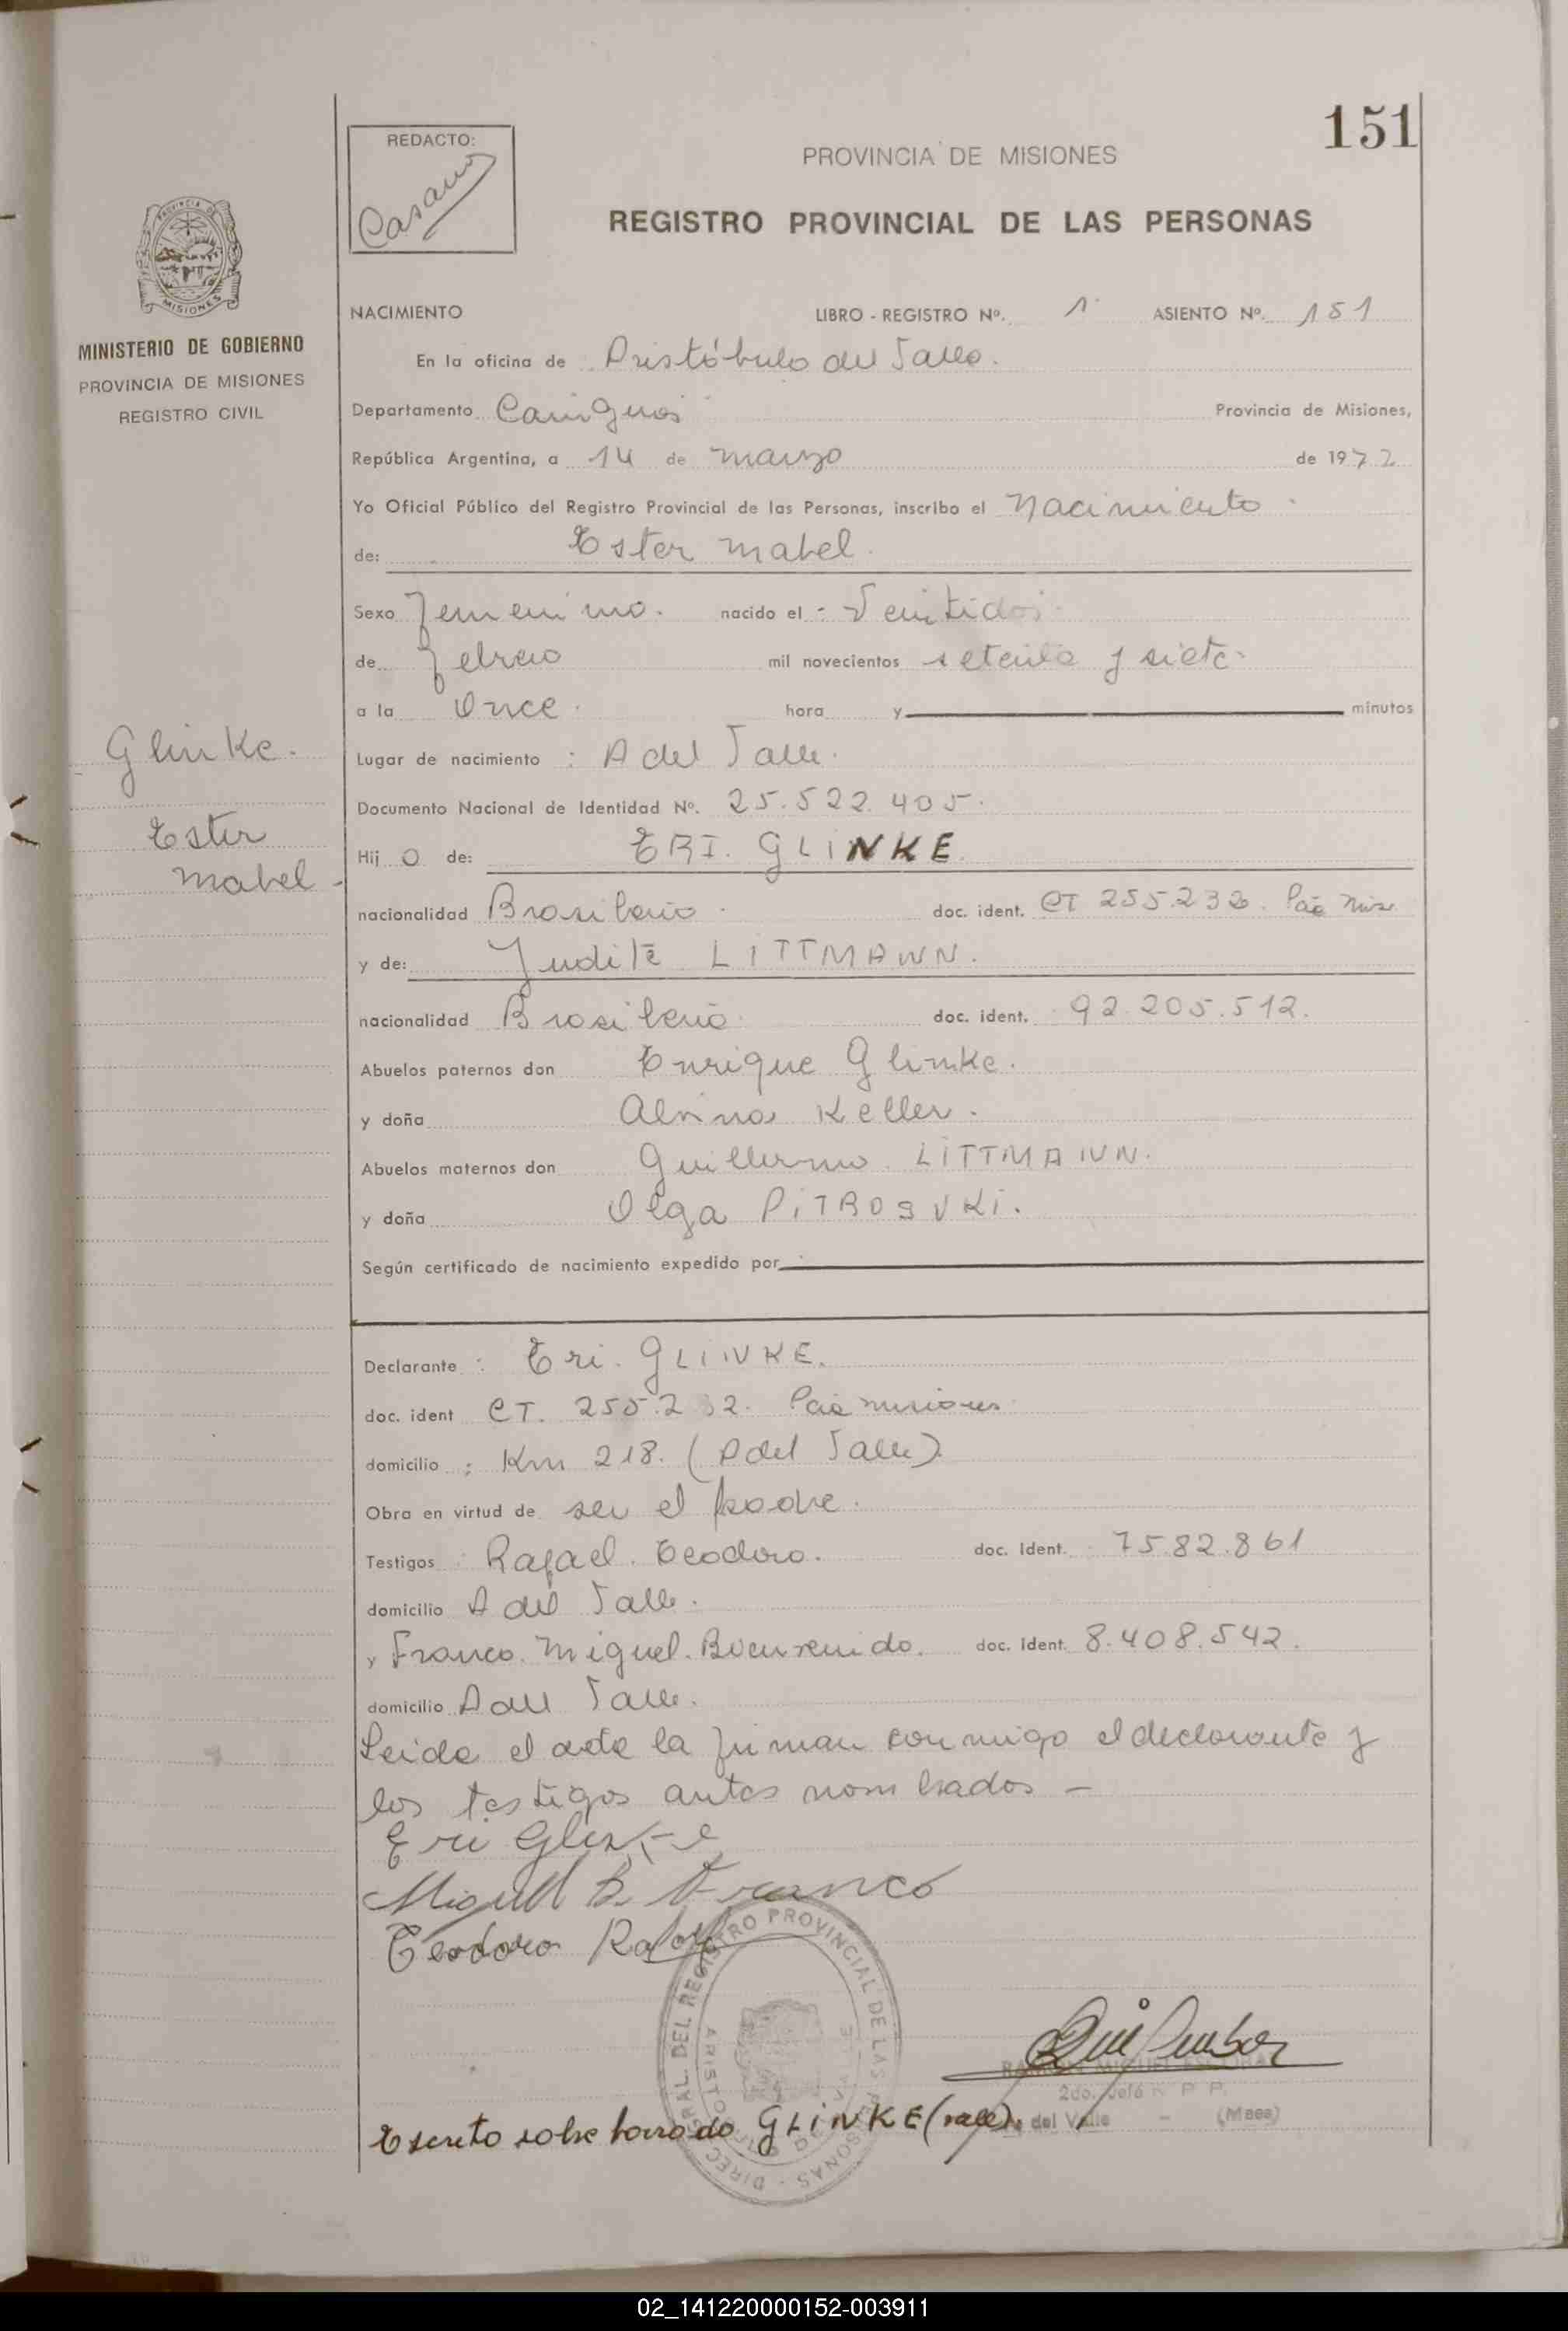 151
REDACTO:
PROVINCIA DE MISIONES
REGISTRO PROVINCIAL DE LAS PERSONAS
PROVINCIA DE MISIONES
MINISTERIO DE GOBIERNO
PROVINCIA DE MISIONES
REGISTRO CIVIL
NACIMIENTO LIBRO - REGISTRO Nº. 1 ASIENTO Nº. 151
En la oficina de Aristóbulo del Valle.
Departamento Cainguas Provincia de Misiones,
República Argentina, a 14 de marzo de 1972
Yo Oficial Público del Registro Provincial de las Personas, inscribo el Nacimiento
de: Ester Mabel.
Sexo Femenino. nacido el - Veintidos
de Febrero mil novecientos setenta y siete-
a la Once. hora y minutos
Glinke.
Ester
Mabel -
Lugar de nacimiento : A del Valle.
Documento Nacional de Identidad Nº. 25.522.405.
Hij o de: ERI. GLINKE
nacionalidad Brasileño. doc. ident. CT 255.232.
y de: Judite LITTMANN.
nacionalidad Brasileña doc. ident. 92.205.512.
Abuelos paternos don Enrique Glinke.
y doña Alvina Keller.
Abuelos maternos don Guillermo LITTMANN.
y doña Olga PITROSVKI.
Según certificado de nacimiento expedido por
Declarante : Eri. GLINKE.
doc. ident CT. 255.232. Misiones
domicilio : Km 218. (A del Valle).
Obra en virtud de ser el padre.
Testigos : Rafael. Teodoro. doc. Ident. 7582.861
domicilio A del Valle.
y Franco. Miguel. Buenvenido. doc. Ident. 8.408.542.
domicilio A del Valle.
Leida el acta la firman conmigo el declarante y
los testigos antes nombrados -
Eri Glinke
Miguel B. Franco
Teodoro Rafael
DIREC. GRAL. DEL REGISTRO PROVINCIAL DE LAS PERSONAS
2do. Jefe R P P.
del Valle - (Mnes)
Escrito sobre borrado GLINKE (vale).
02_141220000152-003911